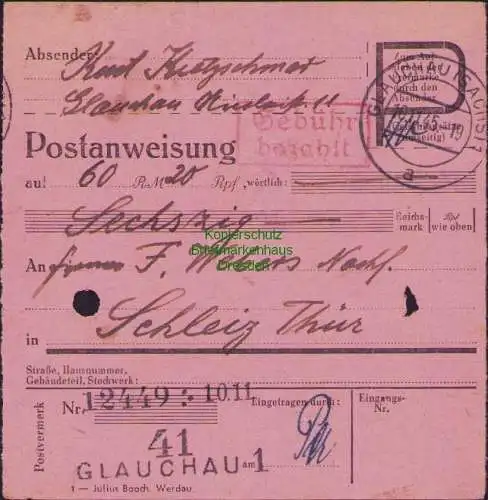 Absender: Kurt Kretzschmar
Glauchau
11
Zum Auf-
kleben der
Freimarke
durch den
Absender
GLAUCHAU (SACHS) 1
45.-19
a
Gebühr
bezahlt
Postanweisung
auf 60 RM 20 Rpf wörtlich:
Sechszig
Reichs-
mark
Rpf
wie oben
Konjerschutz
Briefmarkenhaus
Dresden
An Firma F. Webers Nachf.
in Schleiz Thür
Straße, Hausnummer,
Gebäudeteil, Stockwerk:
Postvermerk
Nr. 12449 : 10.11
Eingetragen durch:
Eingangs-
Nr.
41
GLAUCHAU am 1
1 — Julius Booch, Werdau.